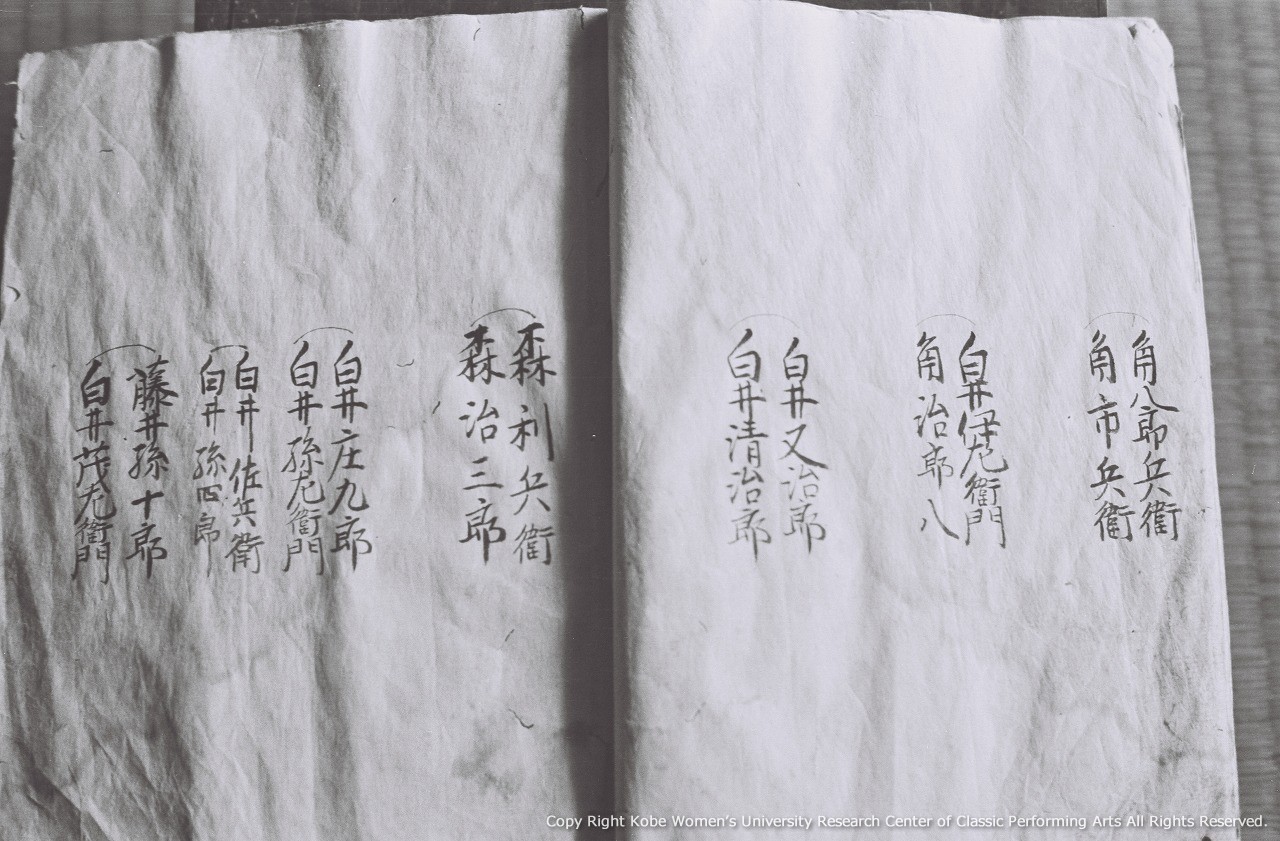 角八郎兵衛
角市兵衛
白井伊左衛門
角治郎八
白井又治郎
白井清治郎
森利兵衛
森治三郎
白井庄九郎
白井孫左衛門
白井佐兵衛
白井孫四郎
藤井孫十郎
白井茂左衛門
Copy Right Kobe Women's University Research Center of Classic Performing Arts All Rights Reserved.